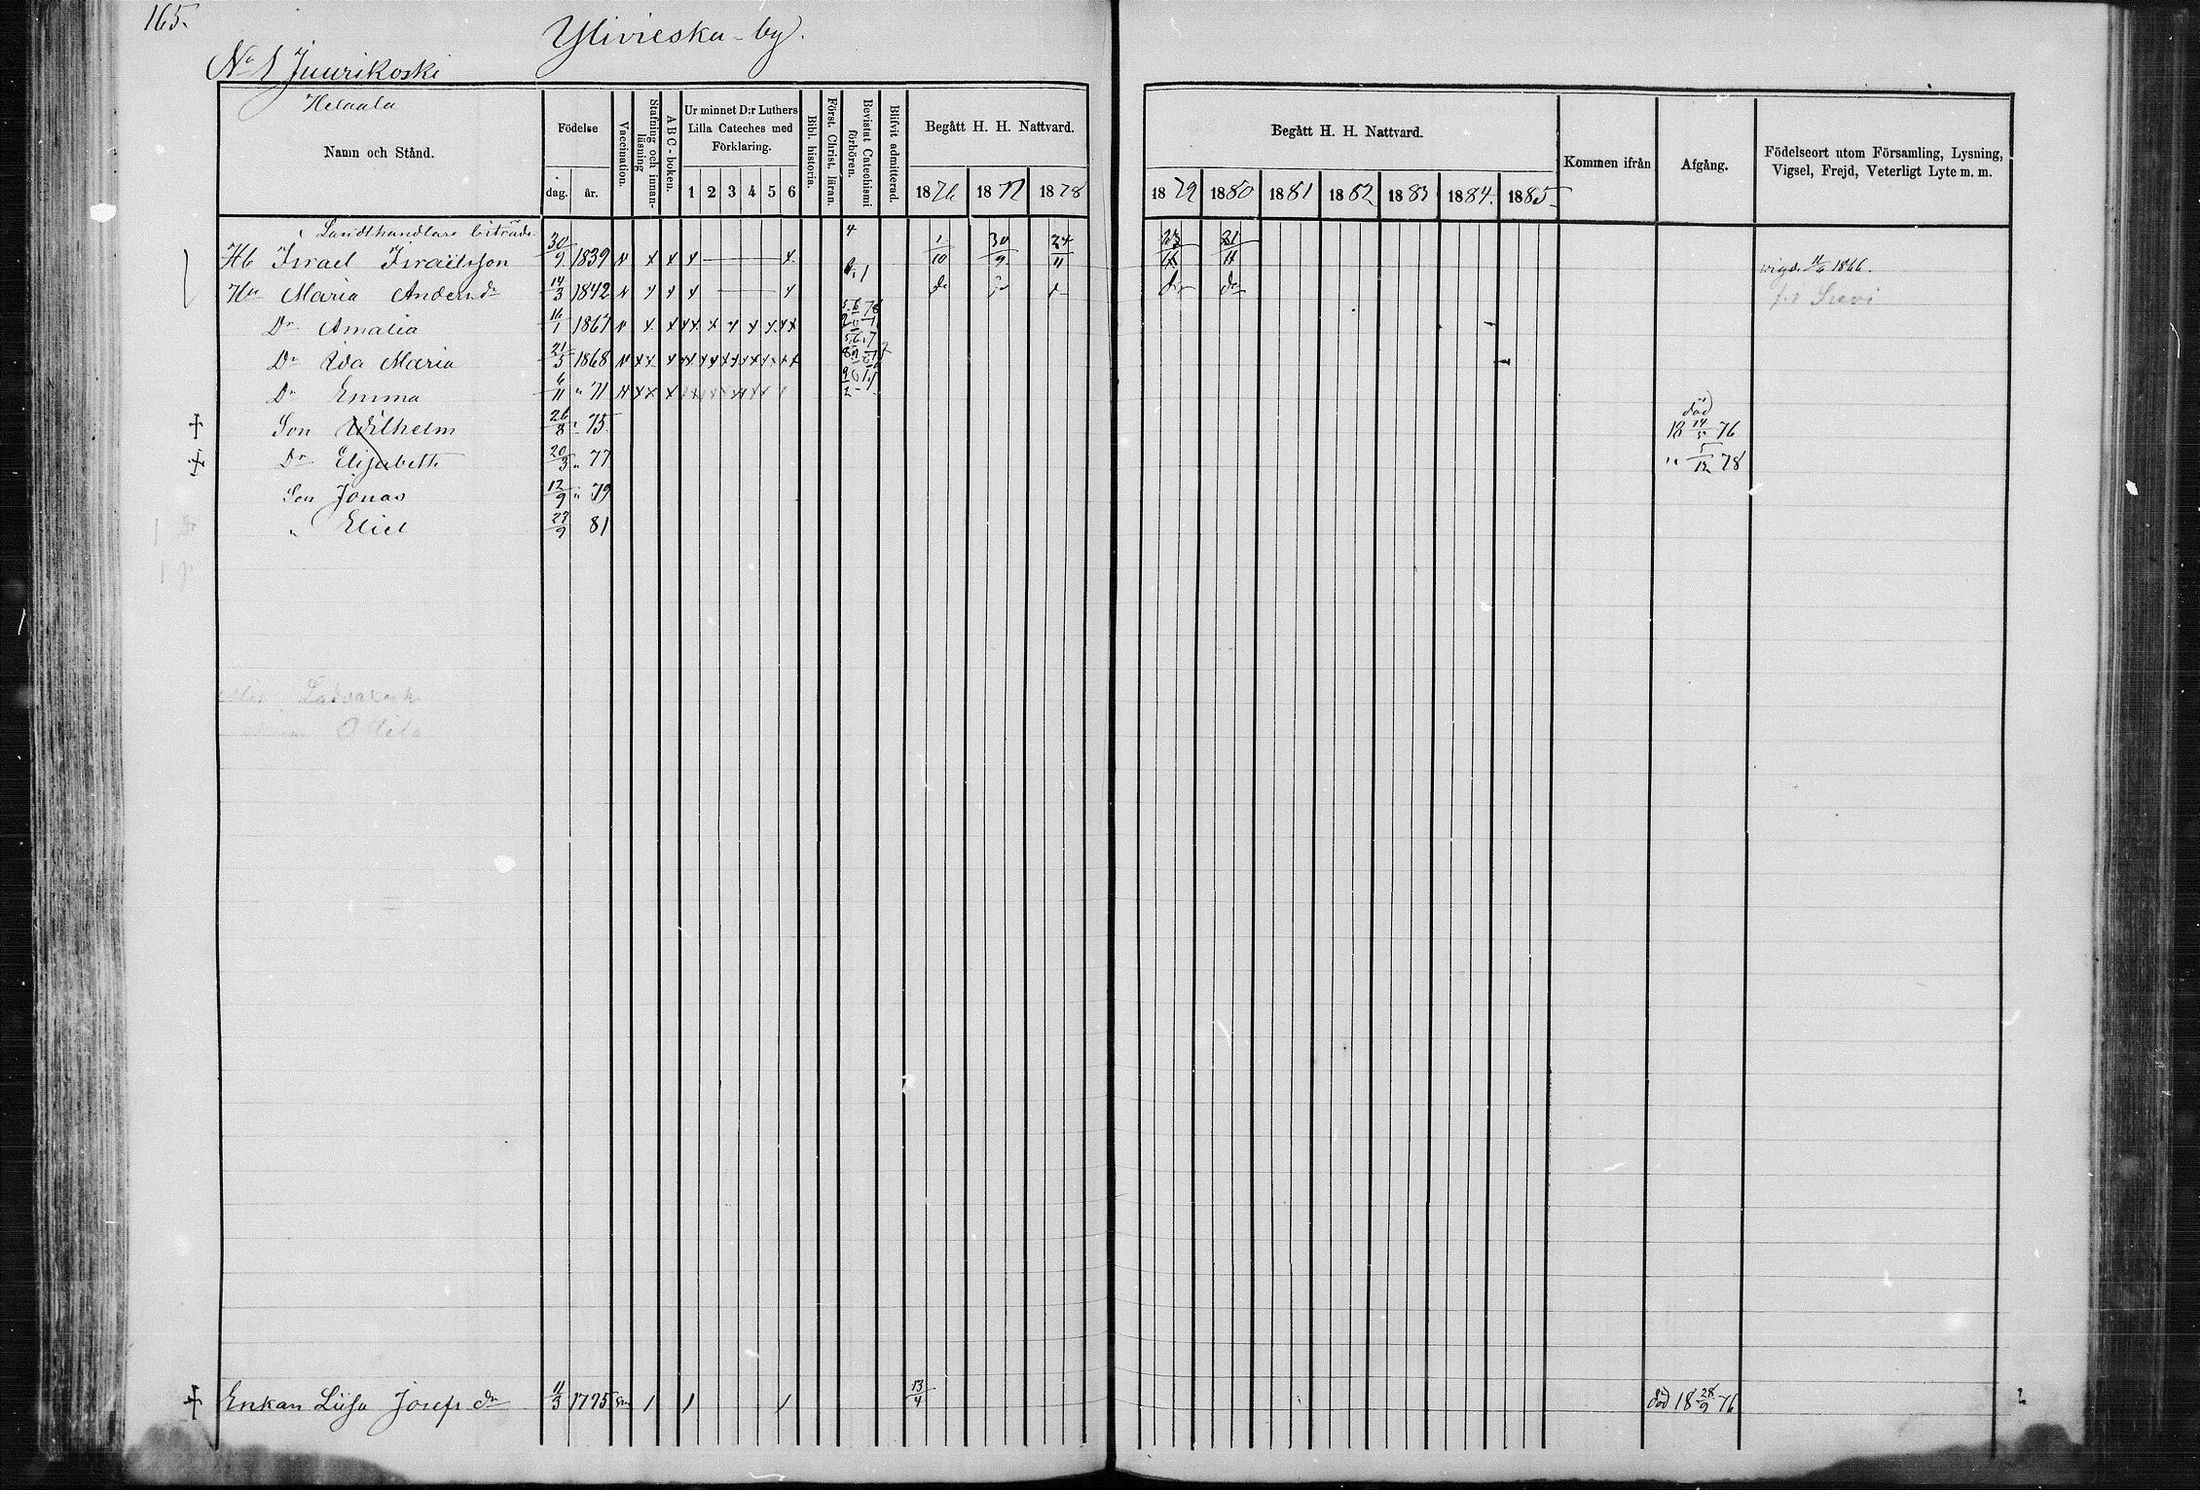 165.
Ylivieska - by.
No 1 Juurikoski
Helaala
Namn och Stånd.
Födelse
dag. år.
Vaccination.
Stafning och innan-läsning
A B C - boken.
Ur minnet D:r Luthers Lilla Cateches med Förklaring.
1 2 3 4 5 6
Bibl. historia.
Först. Christ. läran.
Bevistat Catechismi förhören.
Blifvit admitterad.
Begått H. H. Nattvard.
1876 1877 1878
Begått H. H. Nattvard.
1879 1880 1881 1882 1883 1884. 1885
Kommen ifrån
Afgång.
Födelseort utom Församling, Lysning, Vigsel, Frejd, Veterligt Lyte m. m.
Landthandlare biträde
Hb Israel Israelsson 30/9 1839 1/10 30/9 24/11 vigd. 11/6 1866.
Hu Maria Andersdr 14/3 1842 do do Sievi
Dr Amalia 16/1 1867
Dr Ida Maria 21/5 1868
Dr Emma 6/11 " 71
Son Wilhelm 26/8 " 75 död 18 14/5 76
Dr Elisabeth 20/3 " 77 " 5/12 78
Son Jonas 12/9 " 79
" Eliel 27/9 81
Enkan Liisa Josefsdr 11/3 1795 13/4 död 18 28/9 76